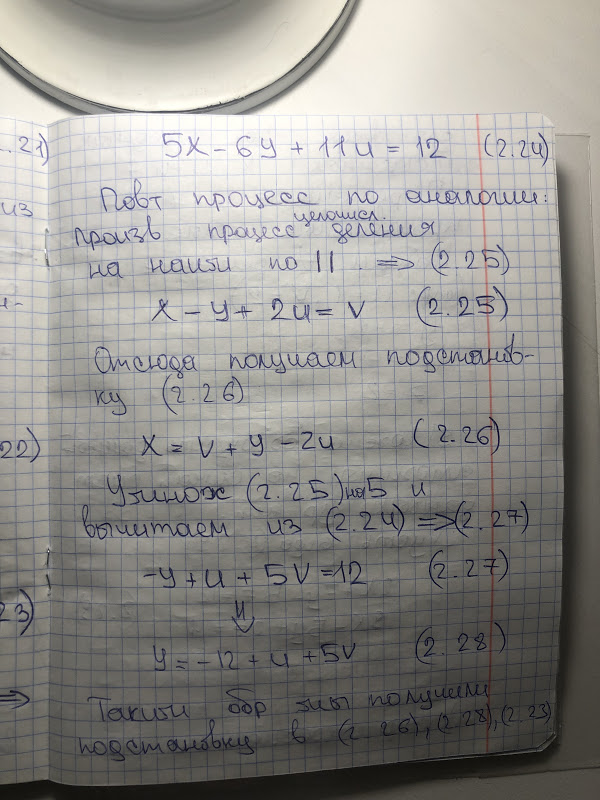 ..21)
из
22)
23)
⇒
5x - 6y + 11u = 12 (2.24)
Повт процесс по аналогии:
целочисл.
произв процесс деления
на наиm по || . ⇒ (2.25)
x - y + 2u = v (2.25)
Отсюда получаем подстанов-
ку (2.26)
x = v + y - 2u (2.26)
Умнож (2.25) на 5 и
вычитаем из (2.24) ⇒ (2.27)
-y + u + 5v = 12 (2.27)
⇓
y = -12 + u + 5v (2.28)
Таким обр мы получили
подстановку в (2.26), (2.28), (2.23)